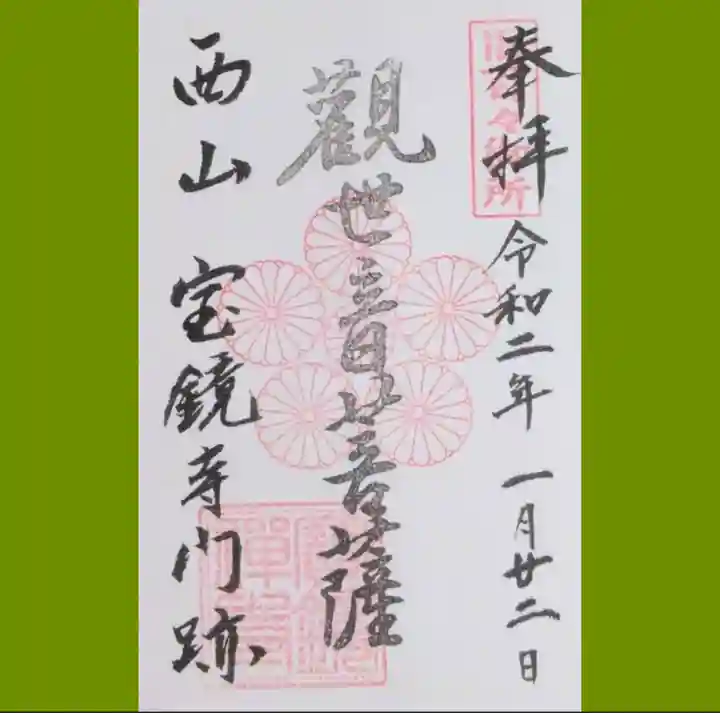 奉拝
令和二年 一月廿二日
觀世音菩薩
西山 宝鏡寺門跡